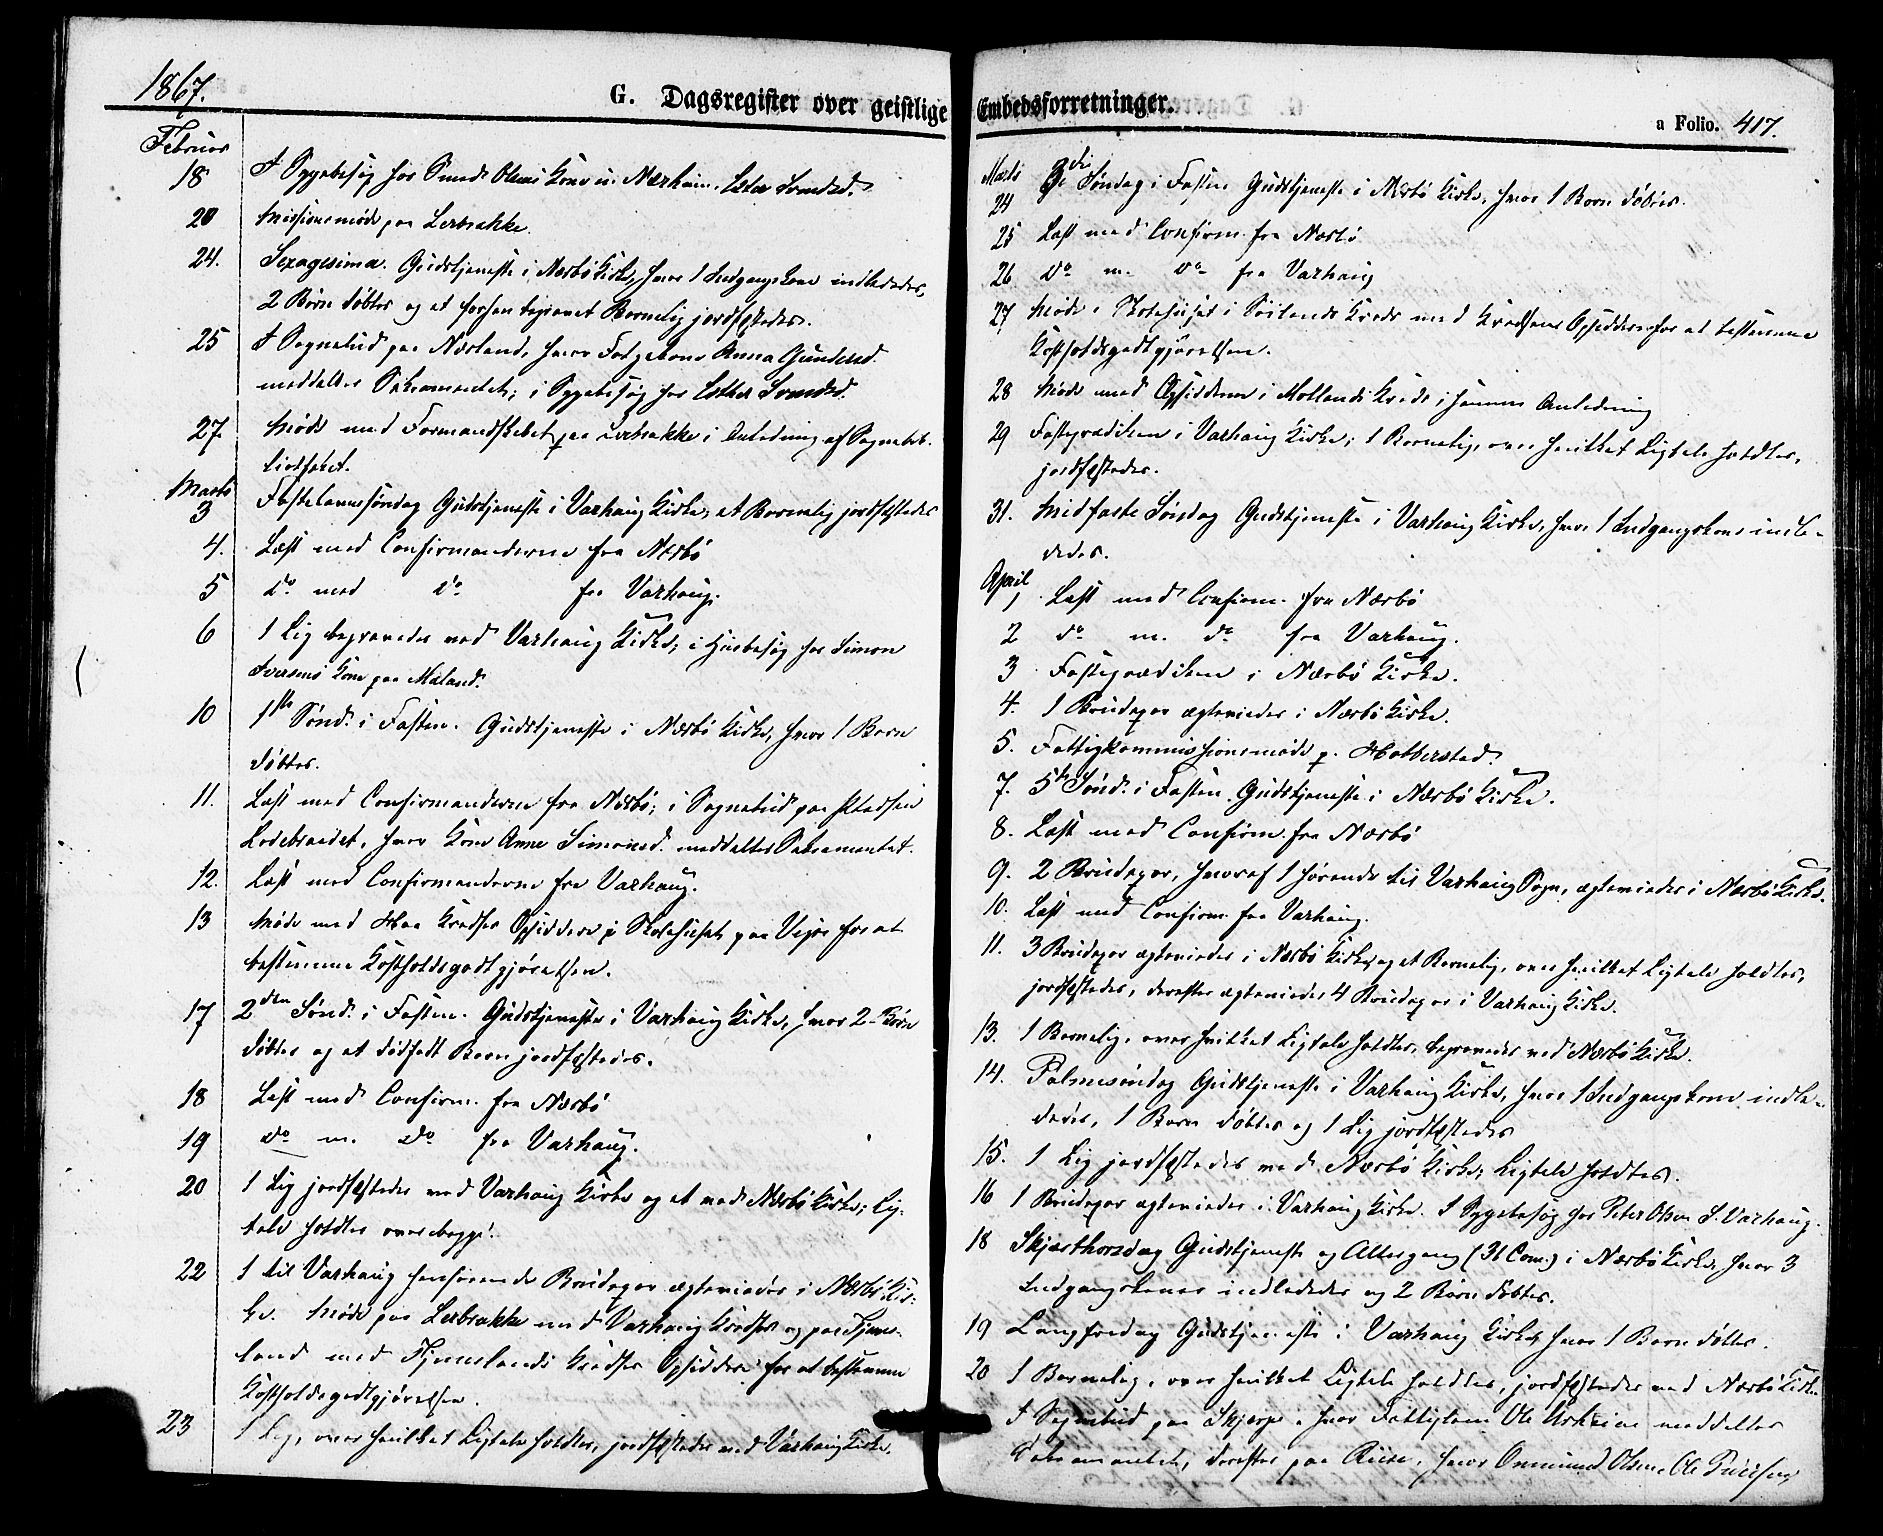 1867.
G. Dagsregister over geistlige
Februar
18 I Sygebesøg hos Smed Olsens Kone i Nærheim, Ester Svendsd.
20 Missionsmøde paa Lerbrække.
24. Sexagesima. Gudstjeneste i Nærbø Kirke, hvor 1 Indgangskone indlededes,
2 Børn døbtes og et forhen begravet Barnelig jordfæstedes.
25 I Sognebud paa Nærland, hvor Anna Gundersd.
meddeltes Sakramentet; i Sygebesøg hos Esther Svendsd.
27. Møde med Formandskabet paa Lerbrække i Anledning af Sognebib-
liotheket.
Marts
3 Fastelavnssøndag Gudstjeneste i Varhaug Kirke, et Barnelig jordfæstedes
4. Læst med Confirmanderne fra Nærbø
5 do med do fra Varhaug.
6 1 Lig begravedes ved Varhaug Kirke; i Husbesøg hos Simon
Iversens Kone paa Mæland.
10 1ste Sønd. i Fasten. Gudstjeneste i Nærbø Kirke, hvor 1 Barn
døbtes.
11. Læst med Confirmanderne fra Nærbø; i Sognebud paa Pladsen
Lodebrædet, hvor Kone Anne Simonsd. meddeltes Sakramentet.
12. Læst med Confirmanderne fra Varhaug.
13 Møde med Haa Kredses Opsiddere i Skolehuset paa Vigre for at
bestemme Kostholdsgodtgjørelsen.
17 2den Sønd. i Fasten. Gudstjeneste i Varhaug Kirke, hvor 2 Børn
døbtes og et dødfødt Barn jordfæstedes.
18 Læst med Confirm. fra Nærbø
19 do m. do fra Varhaug.
20 1 Lig jordfæstedes ved Varhaug Kirke og et ved Nærbø Kirke; Lig-
tale holdtes over begge.
22 1 til Varhaug henhørende Brudepar ægteviedes i Nærbø Kir-
ke. Møde paa Lerbrække med Varhaug Kredses og paa Tjems-
land med Tjemslands Kredses Opsiddere for at bestemme
Kostholdsgodtgjørelsen.
23 1 Lig, over hvilket Ligtale holdtes, jordfæstedes ved Varhaug Kirke.
Embedsforretninger.
a Folio. 417.
Marts
24 3die Søndag i Fasten Gudstjeneste i Nærbø Kirke, hvor 1 Barn døbtes.
25 Læst med Confirm. fra Nærbø
26 do m. do fra Varhaug
27 Møde i Skolehuset i Søilands Kreds med Kredsens Opsiddere for at bestemme
Kostholdsgodtgjørelsen.
28 Møde med Opsidderne i Motlands Kreds i samme Anledning
29 Fasteprædiken i Varhaug Kirke; 1 Barnelig, over hvilket Ligtale holdtes,
jordfæstedes.
31. Midfaste Søndag Gudstjeneste i Varhaug Kirke, hvor 1 Indgangskone indle-
dedes.
April
1 Læst med Confirm. fra Nærbø
2 do m. do fra Varhaug.
3 Fasteprædiken i Nærbø Kirke.
4. 1 Brudepar ægteviedes i Nærbø Kirke.
5. Fattigkommissionsmøde p. Hobberstad.
7. 5te Sønd. i Fasten. Gudstjeneste i Nærbø Kirke.
8. Læst med Confirm. fra Nærbø
9. 2 Brudepar, hvoraf 1 hørende til Varhaug Sogn, ægteviedes i Nærbø Kirke.
10. Læst med Confirm. fra Varhaug.
11. 3 Brudepar ægteviedes i Nærbø Kirke, og et Barnelig, over hvilket Ligtale holdtes,
jordfæstedes, derefter ægteviedes 4 Brudepar i Varhaug Kirke.
13. 1 Barnelig, over hvilket Ligtale holdtes, begravedes ved Nærbø Kirke.
14. Palmesøndag Gudstjeneste i Varhaug Kirke, hvor 1 Indgangskone indle-
dedes, 1 Barn døbtes og 1 Lig jordfæstedes
15. 1 Lig jordfæstedes ved Nærbø Kirke, Ligtale holdtes.
16 1 Brudepar ægteviedes i Varhaug Kirke. I Sygebesøg hos Peter Olsen S. Varhaug.
18 Skjærthorsdag Gudstjeneste og Altergang (31 Com.) i Nærbø Kirke, hvor 3
Indgangskoner indlededes og 2 Børn døbtes.
19 Langfredag Gudstjeneste i Varhaug Kirke, hvor 1 Barn døbtes.
20 1 Barnelig, over hvilket Ligtale holdtes, jordfæstedes ved Nærbø Kirke
I Sognebud paa Skjærpe, hvor Fattiglem Ole meddeltes
Sakramentet, derefter paa Riise, hvor Ommund Olsen, Ole